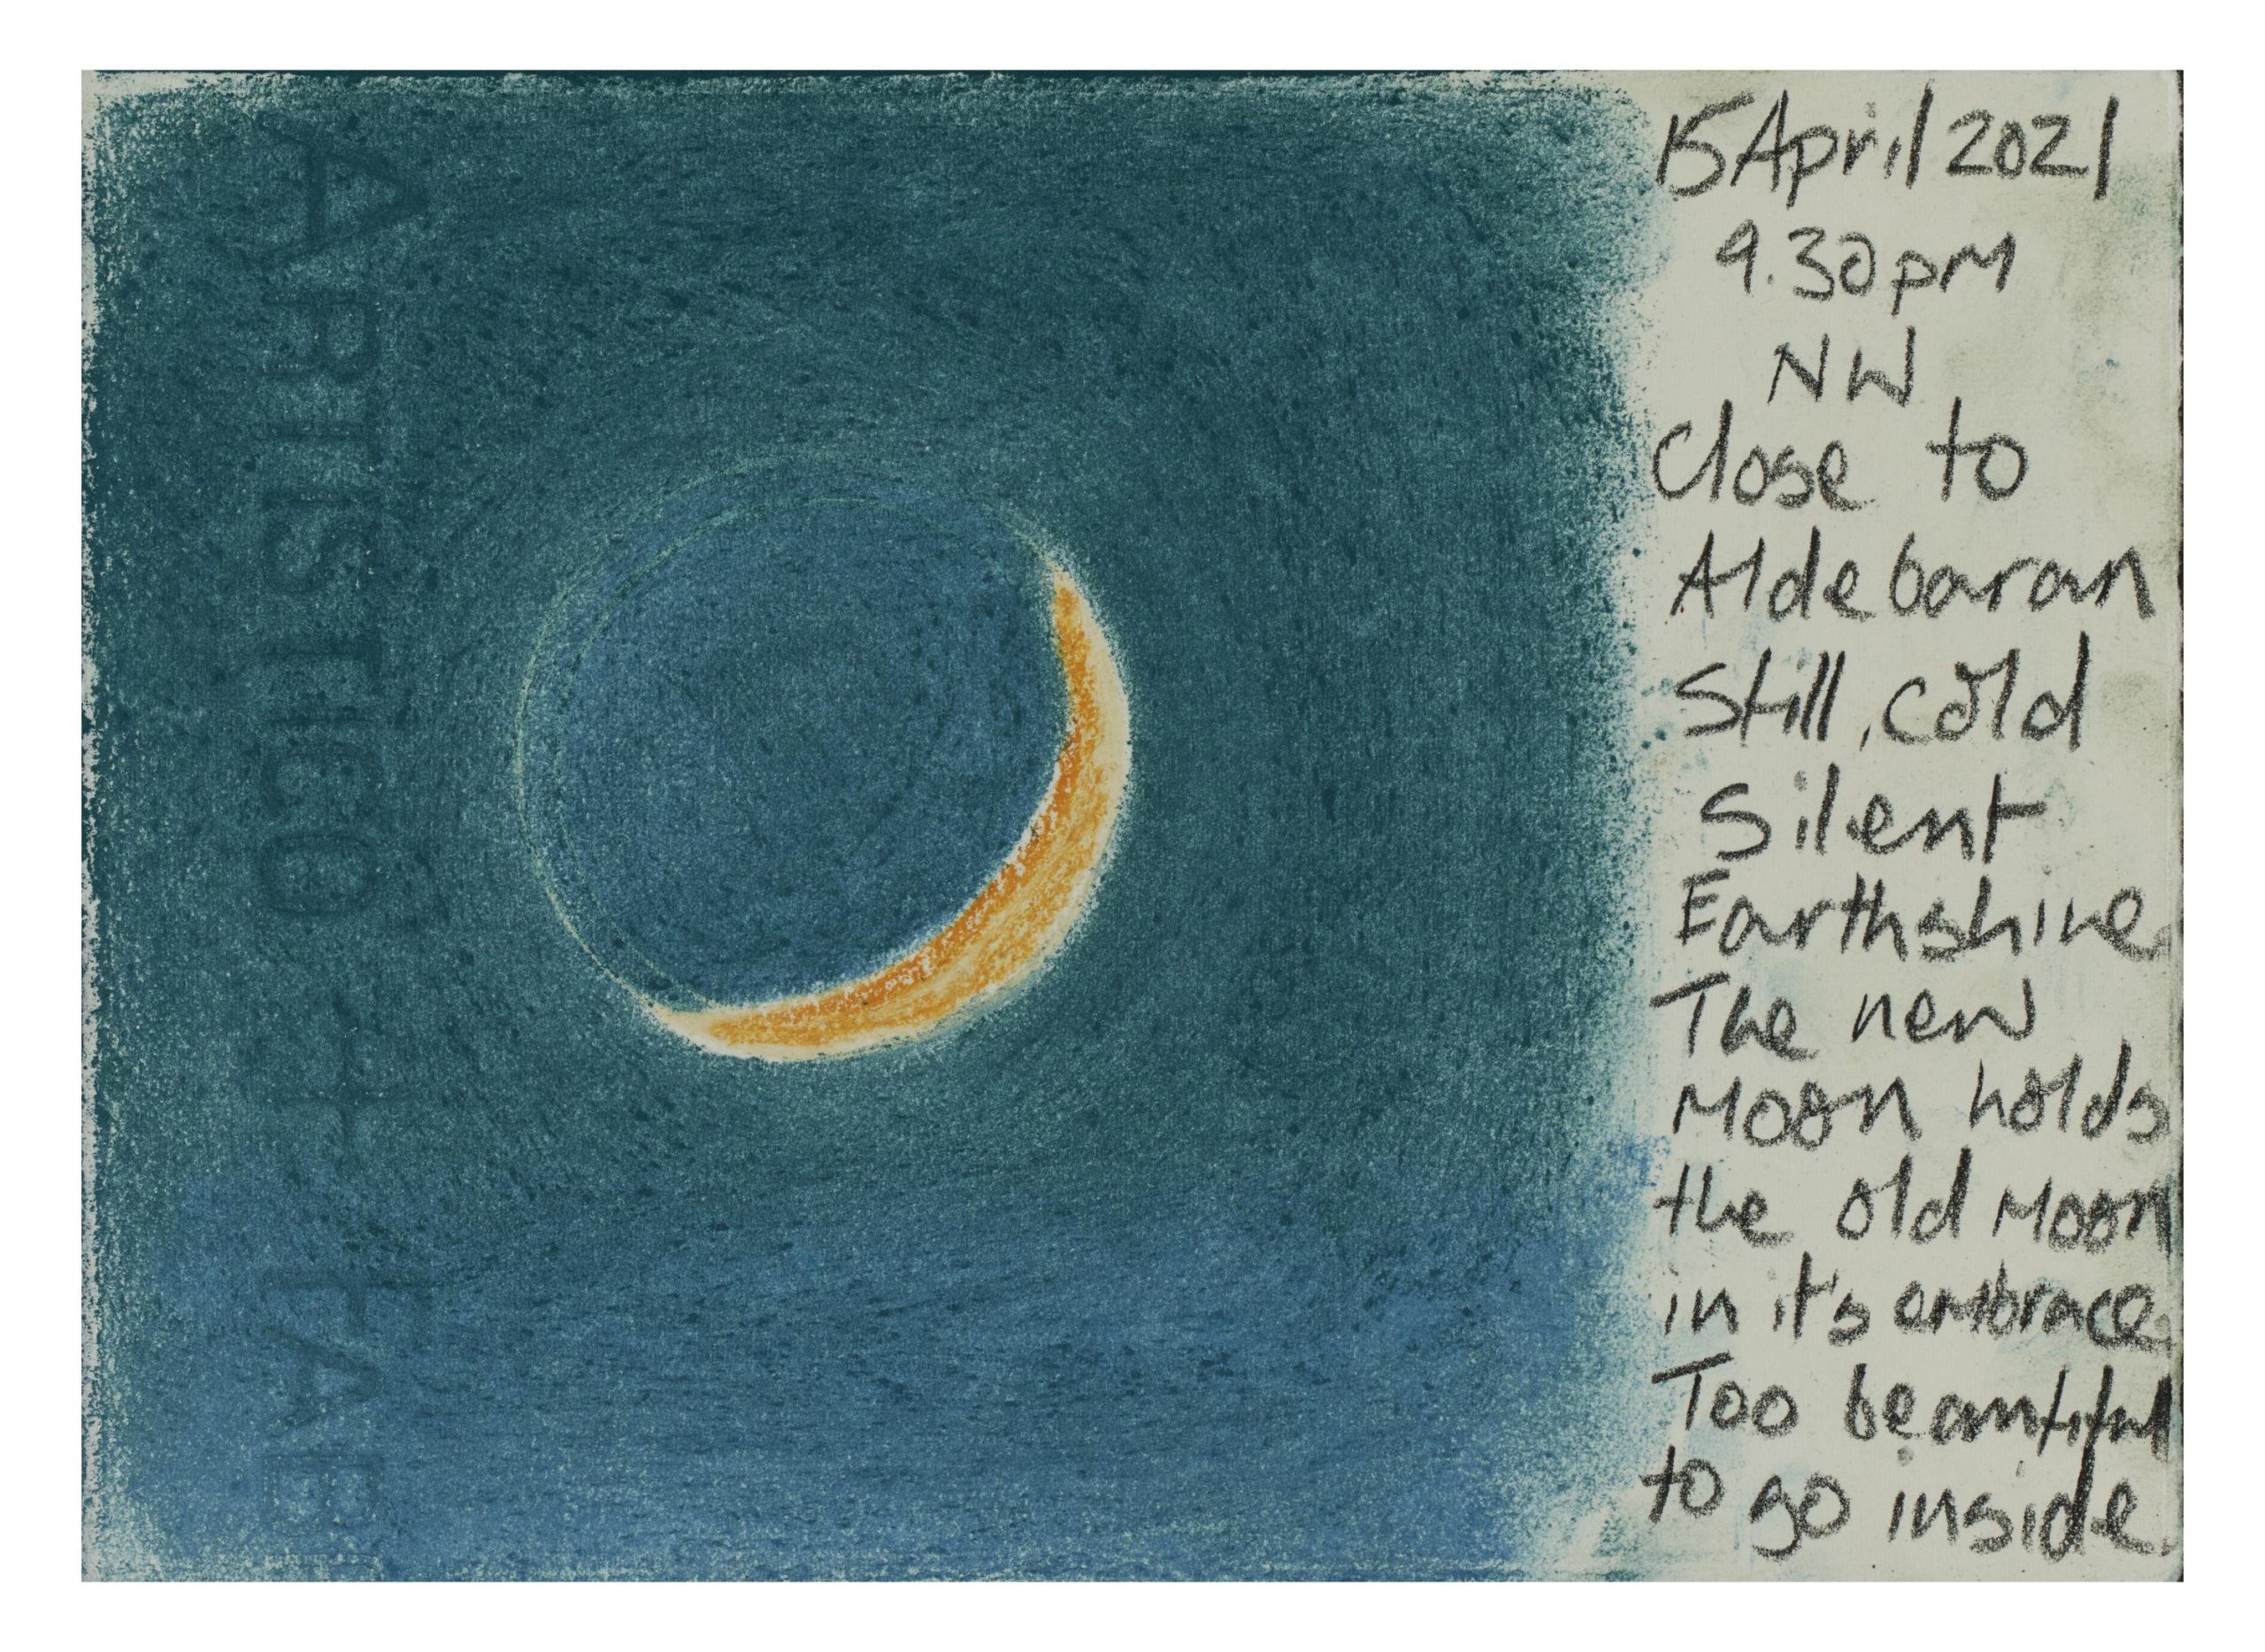 15 April 2021
9.30pm
NW
Close to
Aldebaran
Still, cold
Silent
Earthshine.
The new
Moon holds
the old Moon
in it's embrace.
Too beautiful
to go inside.
ARTISTICO - FAB